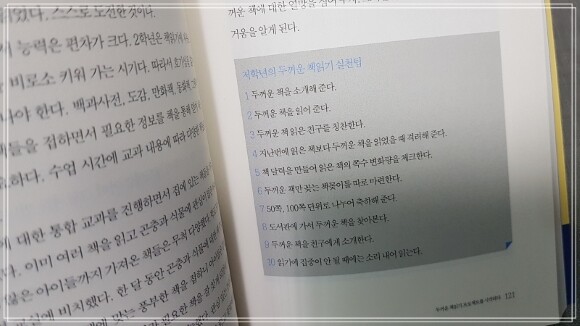 었다. 스스로 도전한 것이다.
능력은 편차가 크다. 2학년은 책읽기
비로소 키워 가는 시기다. 따라서
나야 한다. 백과사전, 도감, 만화책, 동화책
책들을 접하면서 필요한 정보를 책을 통해
하다. 수업 시간에 교과 내용에 따라 다양한
에 대한 통합 교과를 진행하면서 집에 있는
이미 여러 책을 읽고 곤충과 식물에
많은 아이들까지 가져온 책들은 무척 다양했다.
에 비치했다. 한 달 동안 곤충과 식물에
에 맞는 풍부한 책을 접하니
꺼운 책에 대한 열망을
거움을 알게 된다.
저학년의 두꺼운 책읽기 실천팁
1 두꺼운 책을 소개해 준다.
2 두꺼운 책을 읽어 준다.
3 두꺼운 책 읽은 친구를 칭찬한다.
4 지난번에 읽은 책보다 두꺼운 책을 읽었을 때 격려해 준다.
5 책 달력을 만들어 읽은 책의 쪽수 변화량을 체크한다.
6 두꺼운 책만 꽂는 책꽂이를 따로 마련한다.
7 50쪽, 100쪽 단위로 나누어 축하해 준다.
8 도서관에 가서 두꺼운 책을 찾아본다.
9 두꺼운 책을 친구에게 소개한다.
10 읽기에 집중이 안 될 때에는 소리 내어 읽는다.
두꺼운 책읽기 프로젝트를 시작하다 121